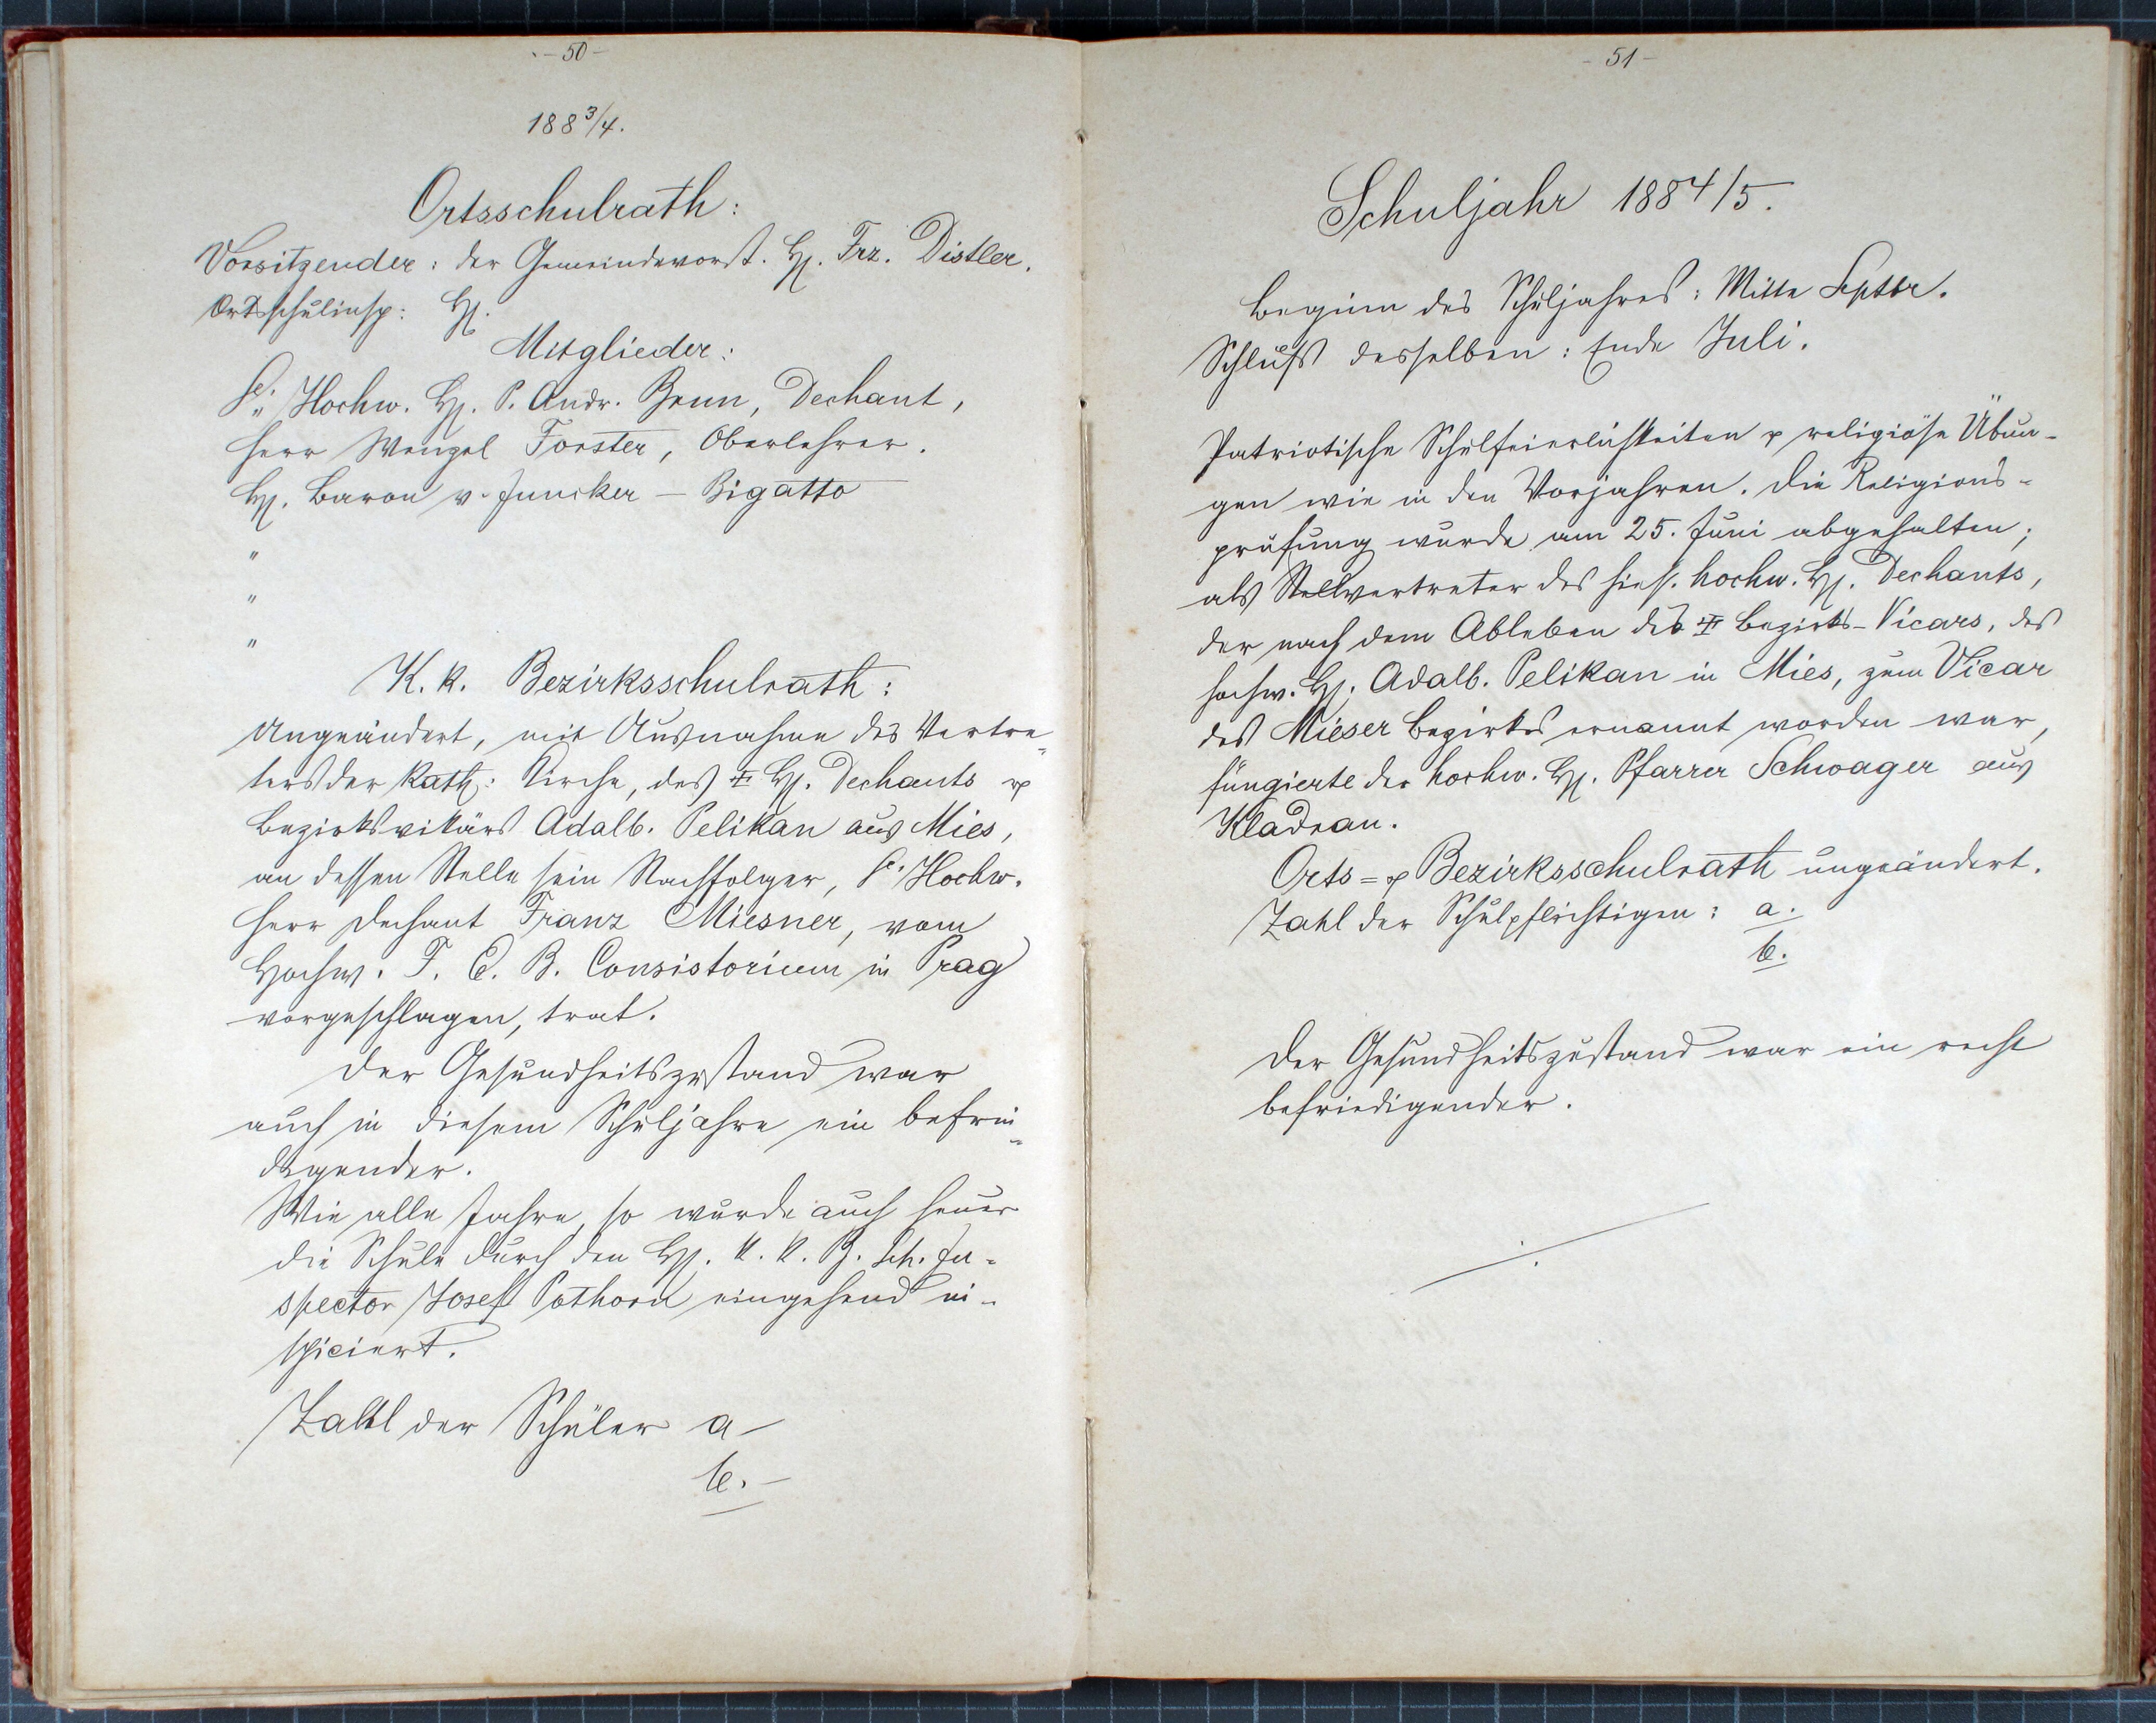 - 50 -
188 3/4.
Ortsschulrath:
Vorsitzender: der Gemeindevorst. H. Frz. Distler.
Ortsschulinsp: H.
Mitglieder:
Se. Hochw. H. P. Andr. Brun, Dechant,
Herr Wenzel Forster, Oberlehrer.
H. Baron v. Juncker - Bigatto
"
"
"
K. k. Bezirksschulrath:
Ungeändert, mit Ausnahme des Vertre-
ters der kath: Kirche, des ‡ H. Dechants &
Bezirksvikärs Adalb. Pelikan aus Mies,
an dessen Stelle sein Nachfolger, Se. Hochw.
Herr Dechant Franz Miesner, vom
Hochw. F. E. B. Consistorium in Prag
vorgeschlagen, trat.
Der Gesundheitszustand war
auch in diesem Schuljahre ein befrie-
digender.
Wie alle Jahre, so wurde auch heuer
die Schule durch den H. k. k. B. Sch. In-
spector Josef Pothorn eingehend in-
spiciert.
Zahl der Schüler a -
b. -
- 51 -
Schuljahr 1884/5.
Beginn des Schuljahres: Mitte Septbr.
Schluß desselben: Ende Juli.
Patriotische Schulfeierlichkeiten & religiöse Übun-
gen wie in den Vorjahren. Die Religions-
prüfung wurde am 25. Juni abgehalten;
als Stellvertreter des hies. hochw. H. Dechants,
der nach dem Ableben des ‡ Bezirks-Vicars, des
hochw. H. Adalb. Pelikan in Mies, zum Vicar
des Mieser Bezirkes ernannt worden war,
fungierte der hochw. H. Pfarrer Schwager aus
Kladrau.
Orts- & Bezirksschulrath ungeändert.
Zahl der Schulpflichtigen: a.
b.
Der Gesundheitszustand war ein recht
befriedigender.